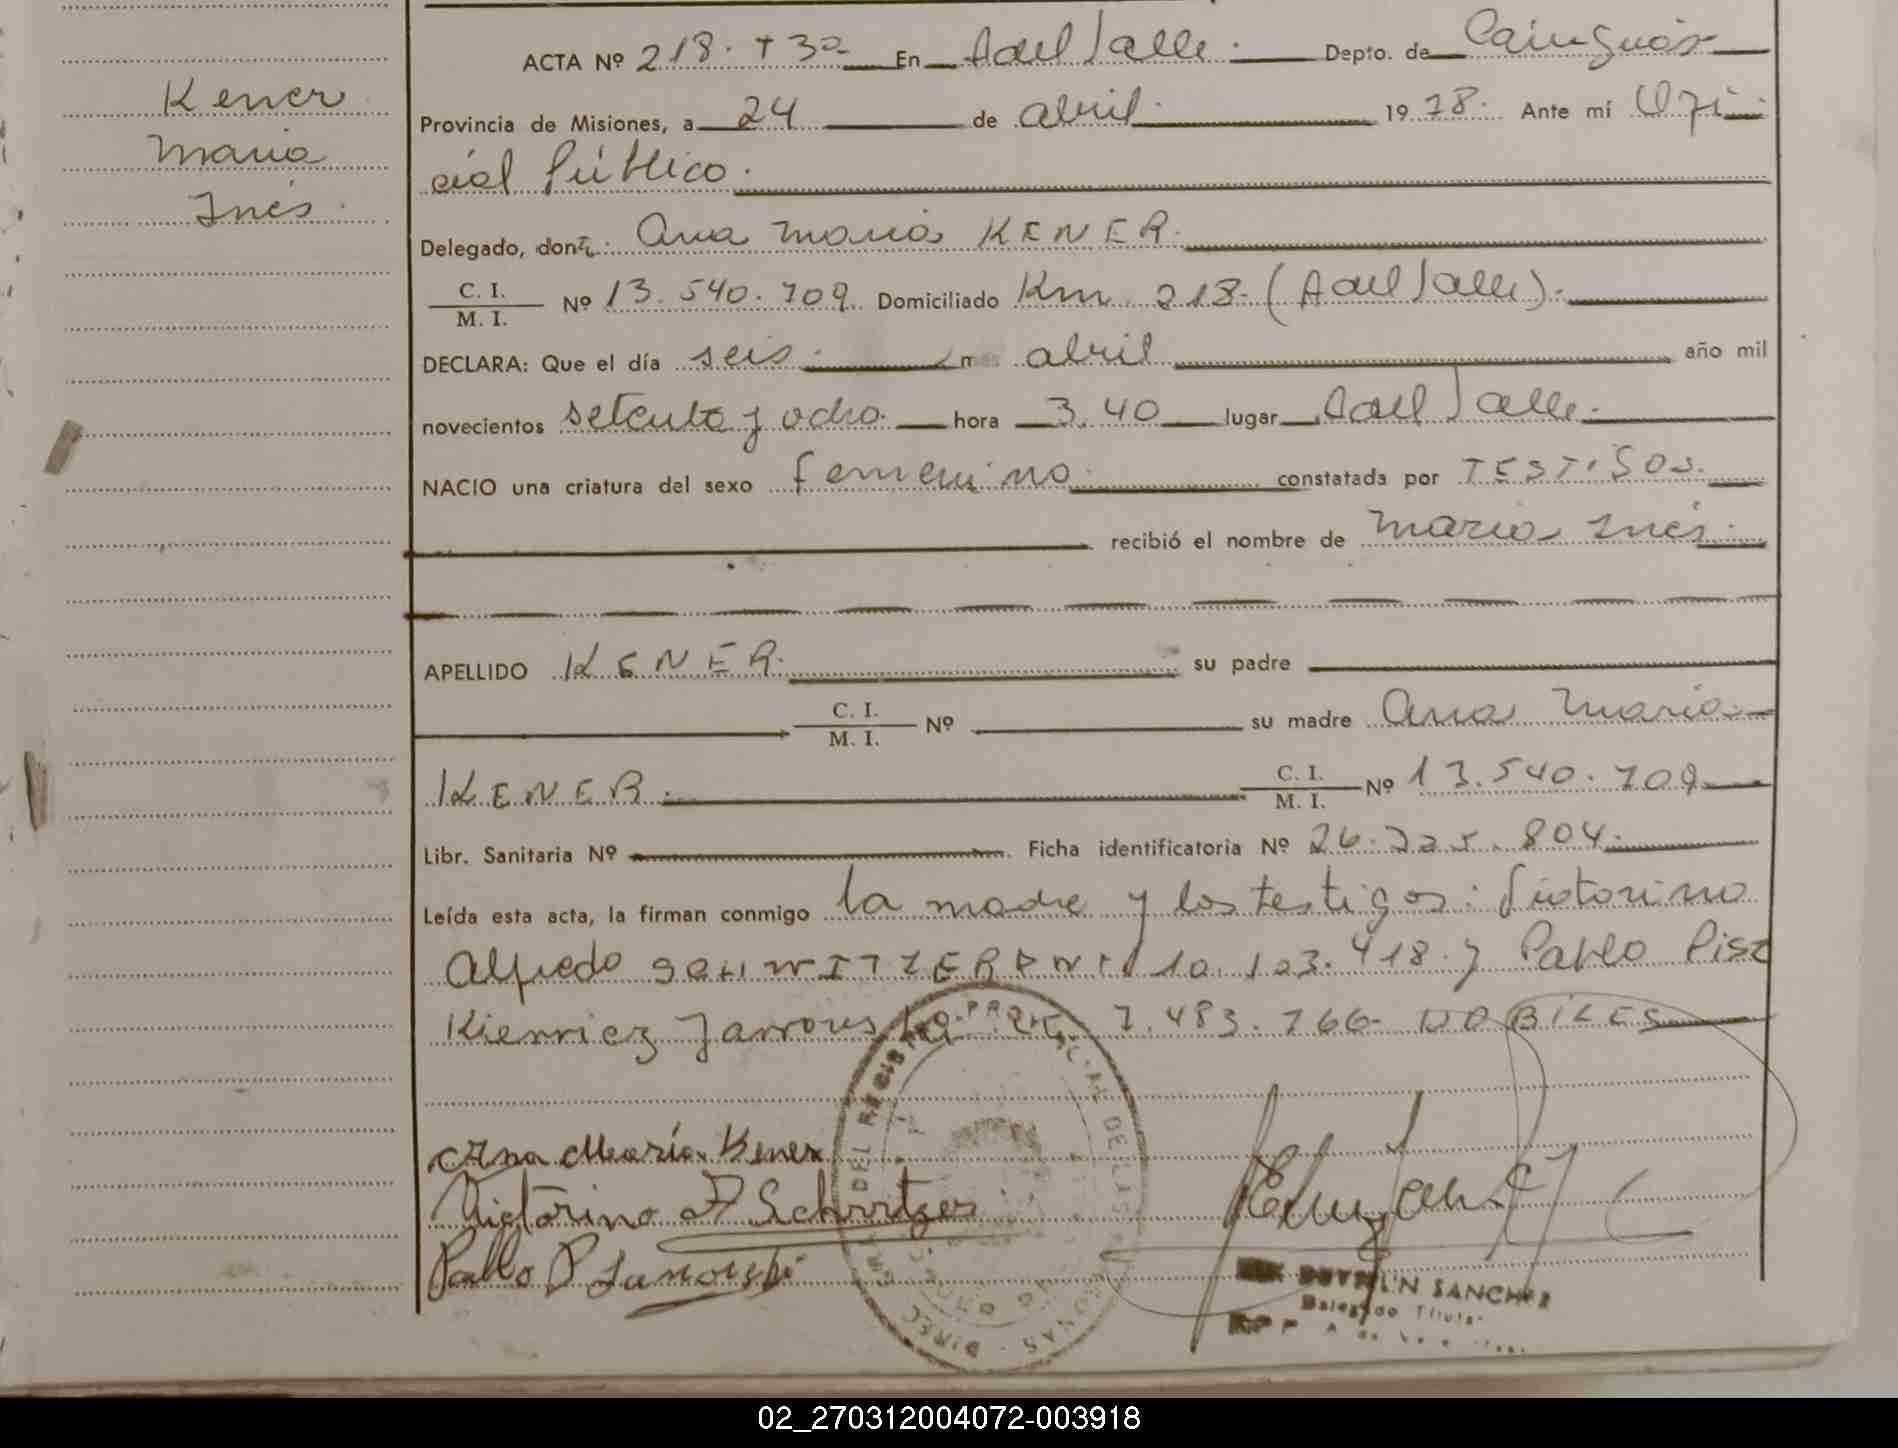 Kener
Maria
Inés.
ACTA Nº 218. T 3º En A del Valle. Depto. de Cainguás
Provincia de Misiones, a 24 de abril. 1978. Ante mí Ofi
cial Público.
Delegado, don Ana Maria KENER.
C. I.
M. I. Nº 13.540.709 Domiciliado Km 218. (A del Valle).
DECLARA: Que el día seis. mes abril año mil
novecientos setenta y ocho. hora 3.40 lugar A del Valle.
NACIO una criatura del sexo femenino. constatada por TESTIGOS.
recibió el nombre de Maria Inés.
APELLIDO KENER. su padre
C. I.
M. I. Nº su madre Ana Maria
KENER. C. I.
M. I. Nº 13.540.709
Libr. Sanitaria Nº Ficha identificatoria Nº 26.225.804.
Leída esta acta, la firman conmigo la madre y los testigos: Victorino
Alfredo 10.103.418. y Pablo
7.483.766
Ana María Kener
Victorino A
Pablo P
SANCHEZ
Delegado Titular
02_270312004072-003918